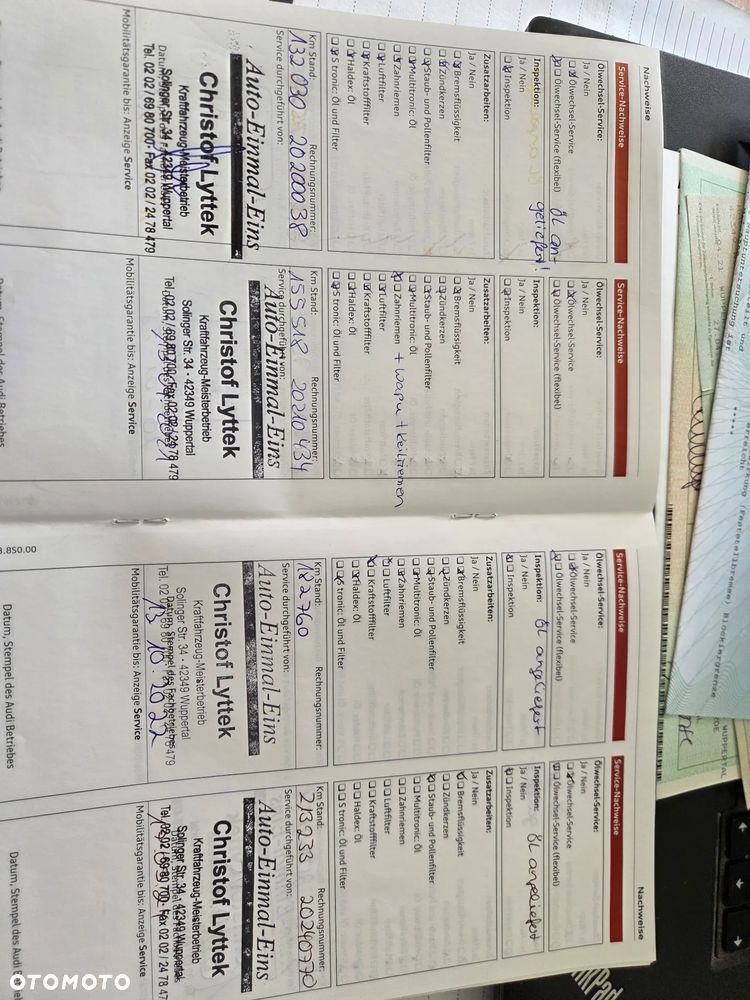 Nachweise
Service-Nachweise
Ölwechsel-Service:
Ja / Nein
Ölwechsel-Service
Ölwechsel-Service (flexibel)
Öl an-
geliefert!
Inspektion:
Ja / Nein
Inspektion
Zusatzarbeiten:
Ja / Nein
Bremsflüssigkeit
Zündkerzen
Staub- und Pollenfilter
Multitronic: Öl
Zahnriemen
Luftfilter
Kraftstofffilter
Haldex: Öl
S tronic: Öl und Filter
Km Stand: Rechnungsnummer:
132 030 20200038
Service durchgeführt von:
Auto-Einmal-Eins
Christof Lyttek
Kraftfahrzeug-Meisterbetrieb
Solinger Str. 34 - 42349 Wuppertal
Tel. 02 02 / 69 80 700 - Fax 02 02 / 24 78 479
Mobilitätsgarantie bis: Anzeige Service
Service-Nachweise
Ölwechsel-Service:
Ja / Nein
Ölwechsel-Service
Ölwechsel-Service (flexibel)
Inspektion:
Ja / Nein
Inspektion
Zusatzarbeiten:
Ja / Nein
Bremsflüssigkeit
Zündkerzen
Staub- und Pollenfilter
Multitronic: Öl
Zahnriemen + Wapu + Keilriemen
Luftfilter
Kraftstofffilter
Haldex: Öl
S tronic: Öl und Filter
Km Stand: Rechnungsnummer:
159 518 20210434
Service durchgeführt von:
Auto-Einmal-Eins
Christof Lyttek
Kraftfahrzeug-Meisterbetrieb
Solinger Str. 34 - 42349 Wuppertal
Tel. 02 02 / 69 80 700 - Fax 02 02 / 24 78 479
Mobilitätsgarantie bis: Anzeige Service
Datum, Stempel des Audi Betriebes
8.8S0.00
Service-Nachweise
Ölwechsel-Service:
Ja / Nein
Ölwechsel-Service
Ölwechsel-Service (flexibel)
Öl angeliefert
Inspektion:
Ja / Nein
Inspektion
Zusatzarbeiten:
Ja / Nein
Bremsflüssigkeit
Zündkerzen
Staub- und Pollenfilter
Multitronic: Öl
Zahnriemen
Luftfilter
Kraftstofffilter
Haldex: Öl
S tronic: Öl und Filter
Km Stand: Rechnungsnummer:
182760
Service durchgeführt von:
Auto-Einmal-Eins
Christof Lyttek
Kraftfahrzeug-Meisterbetrieb
Solinger Str. 34 - 42349 Wuppertal
Datum, Stempel des Fachbetriebes
13. 10. 2022
Mobilitätsgarantie bis: Anzeige Service
Datum, Stempel des Audi Betriebes
Nachweise
Service-Nachweise
Ölwechsel-Service:
Ja / Nein
Ölwechsel-Service
Ölwechsel-Service (flexibel)
Öl angeliefert
Inspektion:
Ja / Nein
Inspektion
Zusatzarbeiten:
Ja / Nein
Bremsflüssigkeit
Zündkerzen
Staub- und Pollenfilter
Multitronic: Öl
Zahnriemen
Luftfilter
Kraftstofffilter
Haldex: Öl
S tronic: Öl und Filter
Km Stand: Rechnungsnummer:
213233 20240770
Service durchgeführt von:
Auto-Einmal-Eins
Christof Lyttek
Kraftfahrzeug-Meisterbetrieb
Solinger Str. 34 - 42349 Wuppertal
Tel. 02 02 / 69 80 700 - Fax 02 02 / 24 78 47
Mobilitätsgarantie bis: Anzeige Service
Datum, Stempel des Audi Betriebes
WUPPERTAL
OTOMOTO